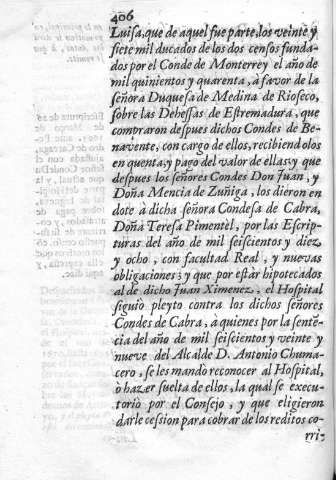 406
Luisa, que de aquel fue parte, los veinte y
siete mil ducados de los dos censos funda-
dos por el Conde de Monterrey el año de
mil quinientos y quarenta, à favor de la
señora Duquesa de Medina de Rioseco,
sobre las Dehessas de Estremadura, que
compraron despues dichos Condes de Be-
navente, con cargo de ellos, recibiendolos
en quenta, y pago del valor de ellas: y que
despues los señores Condes Don Juan, y
Doña Mencia de Zuñiga, los dieron en
dote à dicha señora Condesa de Cabra,
Doña Teresa Pimentèl, por las Escrip-
turas del año de mil seiscientos y diez,
y ocho, con facultad Real, y nuevas
obligaciones: y que por estàr hipotecados
al de dicho Juan Ximenez, el Hospital
siguiò pleyto contra los dichos señores
Condes de Cabra, à quienes por la sentẽ-
cia del año de mil seiscientos y veinte y
nueve del Alcalde D. Antonio Chuma-
cero, se les mandò reconocer al Hospital,
ò hazer suelta de ellos, la qual se execu-
toriò por el Consejo, y que eligieron
darle cession para cobrar de los reditos co-
rri-